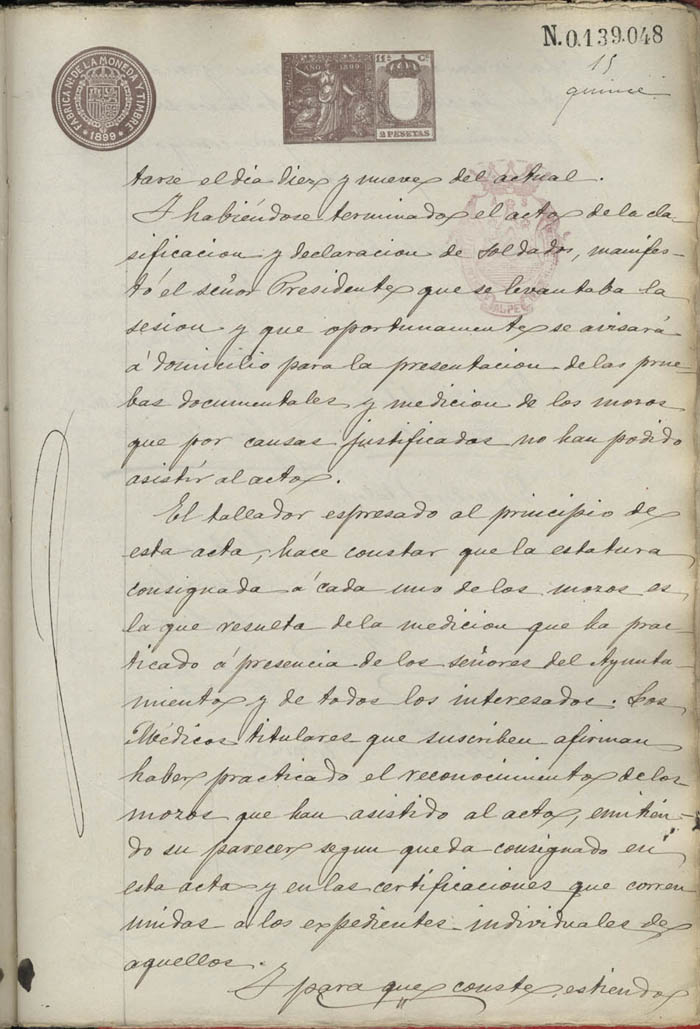 N.0.139.048
FABRICA Nl. DE LA MONEDA Y TIMBRE
* 1899 *
AÑO 1899
11ª Cª
2 PESETAS
15
quince
tarse el dia diez y nueve del actual.
Y habiéndose terminado el acto de la cla-
sificacion y declaracion de soldados, manifes-
tó el señor Presidente que se levantaba la
sesion y que oportunamente se avisará
á domicilio para la presentacion de las prue-
bas documentales y medicion de los mozos
que por causas justificadas no han podido
asistir al acto.
El tallador espresado al principio de
esta acta, hace constar que la estatura
consignada á cada uno de los mozos es
la que resulta de la medicion que ha prac-
ticado á presencia de los señores del Ayunta-
miento y de todos los interesados. Los
Médicos titulares que suscriben afirman
haber practicado el reconocimiento de los
mozos que han asistido al acto, emitien-
do su parecer segun queda consignado en
esta acta y en las certificaciones que corren
unidas a los expedientes individuales de
aquellos.
Y para que conste, estiendo